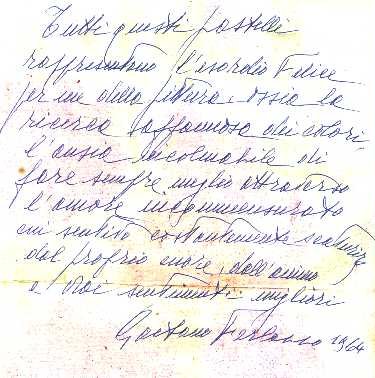 Tutti questi pastelli
rappresentano l'esordio Felice
per me della pittura, ossia la
ricerca affannosa dei colori,
l'ansia incolmabile di
fare sempre meglio attraverso
l'amore incommensurato
sentito costantemente scaturire
dal proprio cuore, dall'animo
e sentimenti migliori
Gaetano 1964